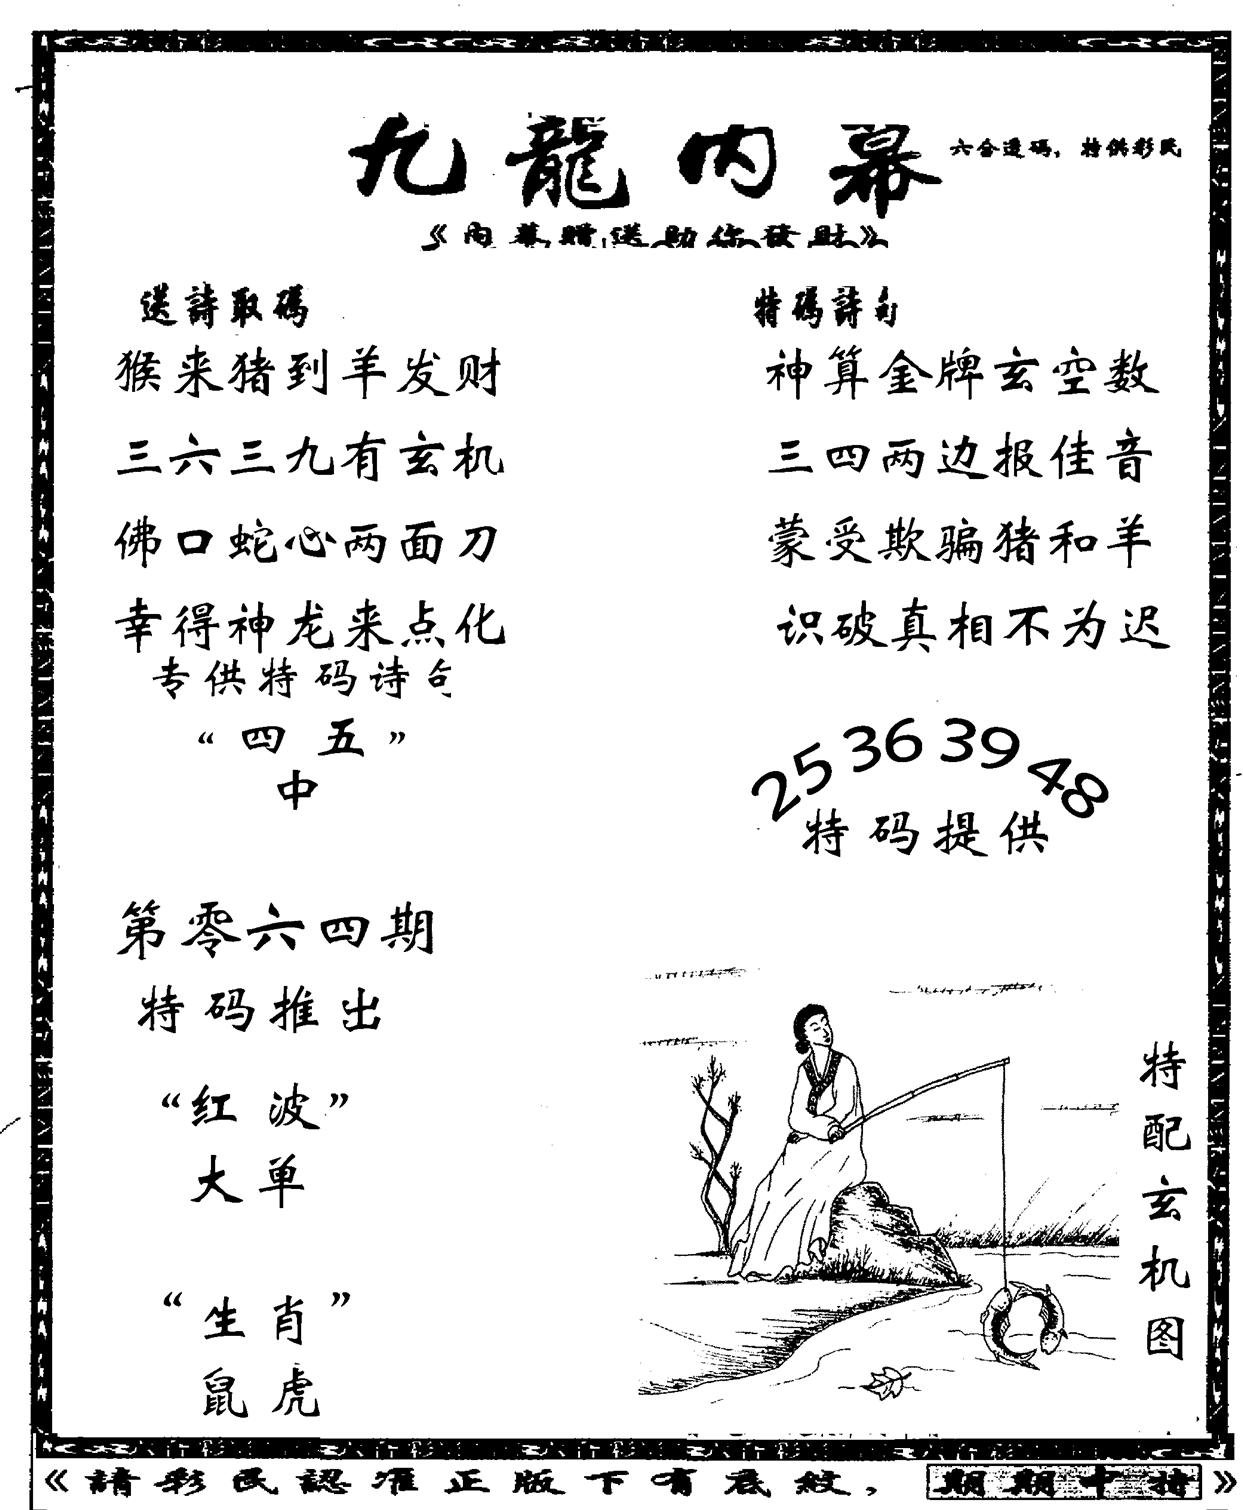 九龍内幕
六合透码，特供彩民
《内幕赠送助你發財》
送詩取碼
猴来猪到羊发财
三六三九有玄机
佛口蛇心两面刀
幸得神龙来点化
专供特码诗句
“四五”
中
特碼詩句
神算金牌玄空数
三四两边报佳音
蒙受欺骗猪和羊
识破真相不为迟
25 36 39 48
特码提供
第零六四期
特码推出
“红波”
大单
“生肖”
鼠虎
特配玄机图
《請彩民認准正版下有底紋，期期中特》